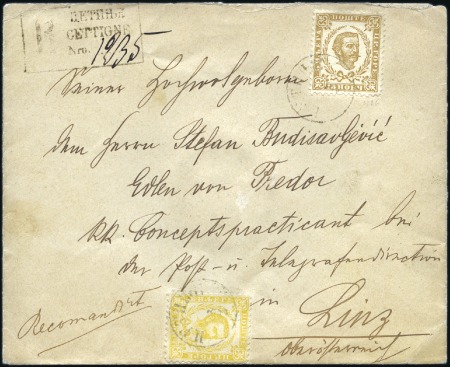 ЦЕТИЊЕ
CETTIGNE
Nro. 1935
Seiner Hochwolgeboren
dem Herrn Stefan Budisavljević
Edlen von Predor
kk. Conceptspracticant bei
der Post- u. Telegrafendirection
in
Recomandirt
Linz
Oberösterreich